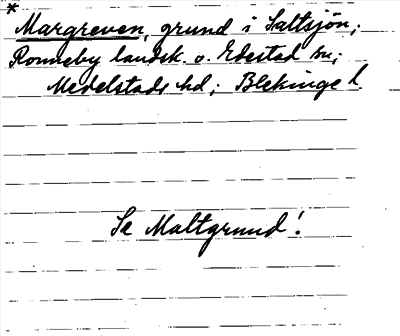 *
Margreven, grund i Saltsjön;
Ronneby landsk. o. Edestad sn;
Medelstads hd; Blekinge l.
Se Maltgrund!